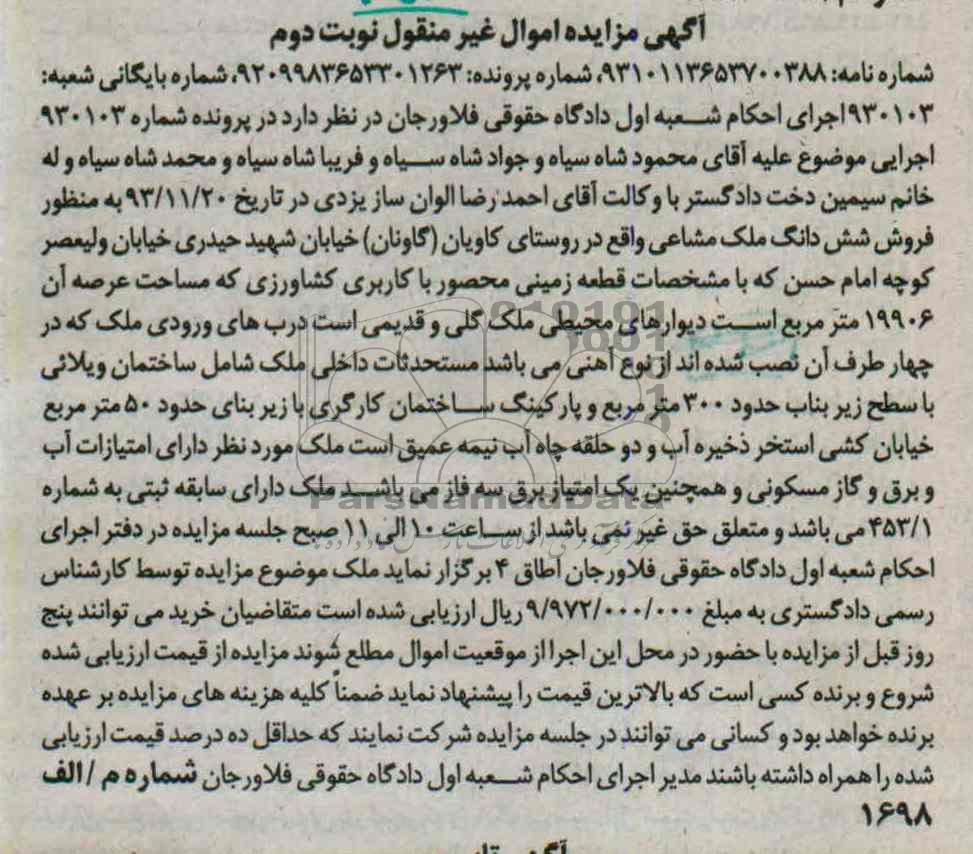 آگهی مزایده اموال غیر منقول نوبت دوم
شماره نامه: ۹۳۱۰۱۱۳۶۵۳۷۰۰۳۸۸، شماره پرونده: ۹۲۰۹۹۸۳۶۵۳۳۰۱۲۶۳، شماره بایگانی شعبه:
۹۳۰۱۰۳ اجرای احکام شعبه اول دادگاه حقوقی فلاورجان در نظر دارد در پرونده شماره ۹۳۰۱۰۳
اجرایی موضوع علیه آقای محمود شاه سیاه و جواد شاه سیاه و فریبا شاه سیاه و محمد شاه سیاه و له
خانم سیمین دخت دادگستر با وکالت آقای احمد رضا الوان ساز یزدی در تاریخ ۹۳/۱۱/۲۰ به منظور
فروش شش دانگ ملک مشاعی واقع در روستای کاویان (گاونان) خیابان شهید حیدری خیابان ولیعصر
کوچه امام حسن که با مشخصات قطعه زمینی محصور با کاربری کشاورزی که مساحت عرصه آن
۱۹۹۰۶ متر مربع است دیوارهای محیطی ملک گلی و قدیمی است درب های ورودی ملک که در
چهار طرف آن نصب شده اند از نوع آهنی می باشد مستحدثات داخلی ملک شامل ساختمان ویلائی
با سطح زیر بناب حدود ۳۰۰ متر مربع و پارکینگ ساختمان کارگری با زیر بنای حدود ۵۰ متر مربع
خیابان کشی استخر ذخیره آب و دو حلقه چاه آب نیمه عمیق است ملک مورد نظر دارای امتیازات آب
و برق و گاز مسکونی و همچنین یک امتیاز برق سه فاز می باشد ملک دارای سابقه ثبتی به شماره
ParsNamadData
۴۵۳/۱ می باشد و متعلق حق غیر نمی باشد از ساعت ۱۰ الی ۱۱ صبح جلسه مزایده در دفتر اجرای
احکام شعبه اول دادگاه حقوقی فلاورجان اطاق ۴ برگزار نماید ملک موضوع مزایده توسط کارشناس
رسمی دادگستری به مبلغ ۹/۹۷۲/۰۰۰/۰۰۰ ریال ارزیابی شده است متقاضیان خرید می توانند پنج
روز قبل از مزایده با حضور در محل این اجرا از موقعیت اموال مطلع شوند مزایده از قیمت ارزیابی شده
شروع و برنده کسی است که بالاترین قیمت را پیشنهاد نماید ضمناً کلیه هزینه های مزایده بر عهده
برنده خواهد بود و کسانی می توانند در جلسه مزایده شرکت نمایند که حداقل ده درصد قیمت ارزیابی
شده را همراه داشته باشند مدیر اجرای احکام شعبه اول دادگاه حقوقی فلاورجان شماره م / الف
۱۶۹۸